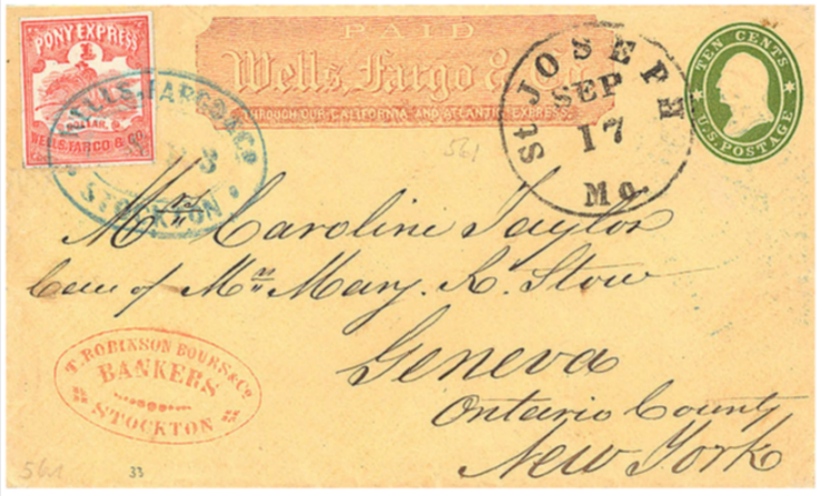 PONY EXPRESS
1
DOLLAR.
WELLS, FARGO & CO.
WELLS, FARGO & CO
3
STOCKTON
PAID
Wells, Fargo & Co
THROUGH OUR CALIFORNIA AND ATLANTIC EXPRESS.
St JOSEPH
SEP
17
Mo.
TEN CENTS
U.S. POSTAGE
561
Mrs Caroline Taylor
Care of Mrs Mary. R. Stow
Geneva
Ontario County
New York
T. ROBINSON BOURS, & Co.
BANKERS
STOCKTON
561
33